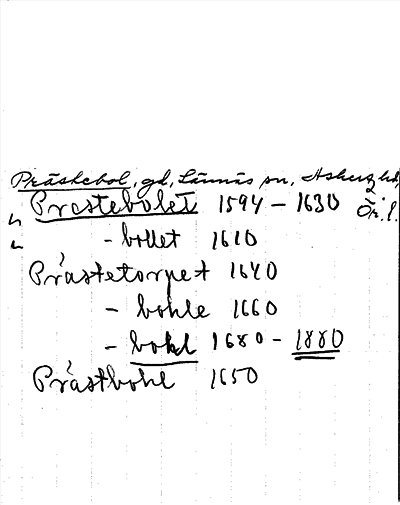 Prästebol, gd, Lännäs sn, Askers hd,
Prestebolet 1594 – 1630 Ör. l.
" - bollet 1610
Prästetorpet 1640
- bohle 1660
- bohl 1680 - 1880
Prästbohl 1650